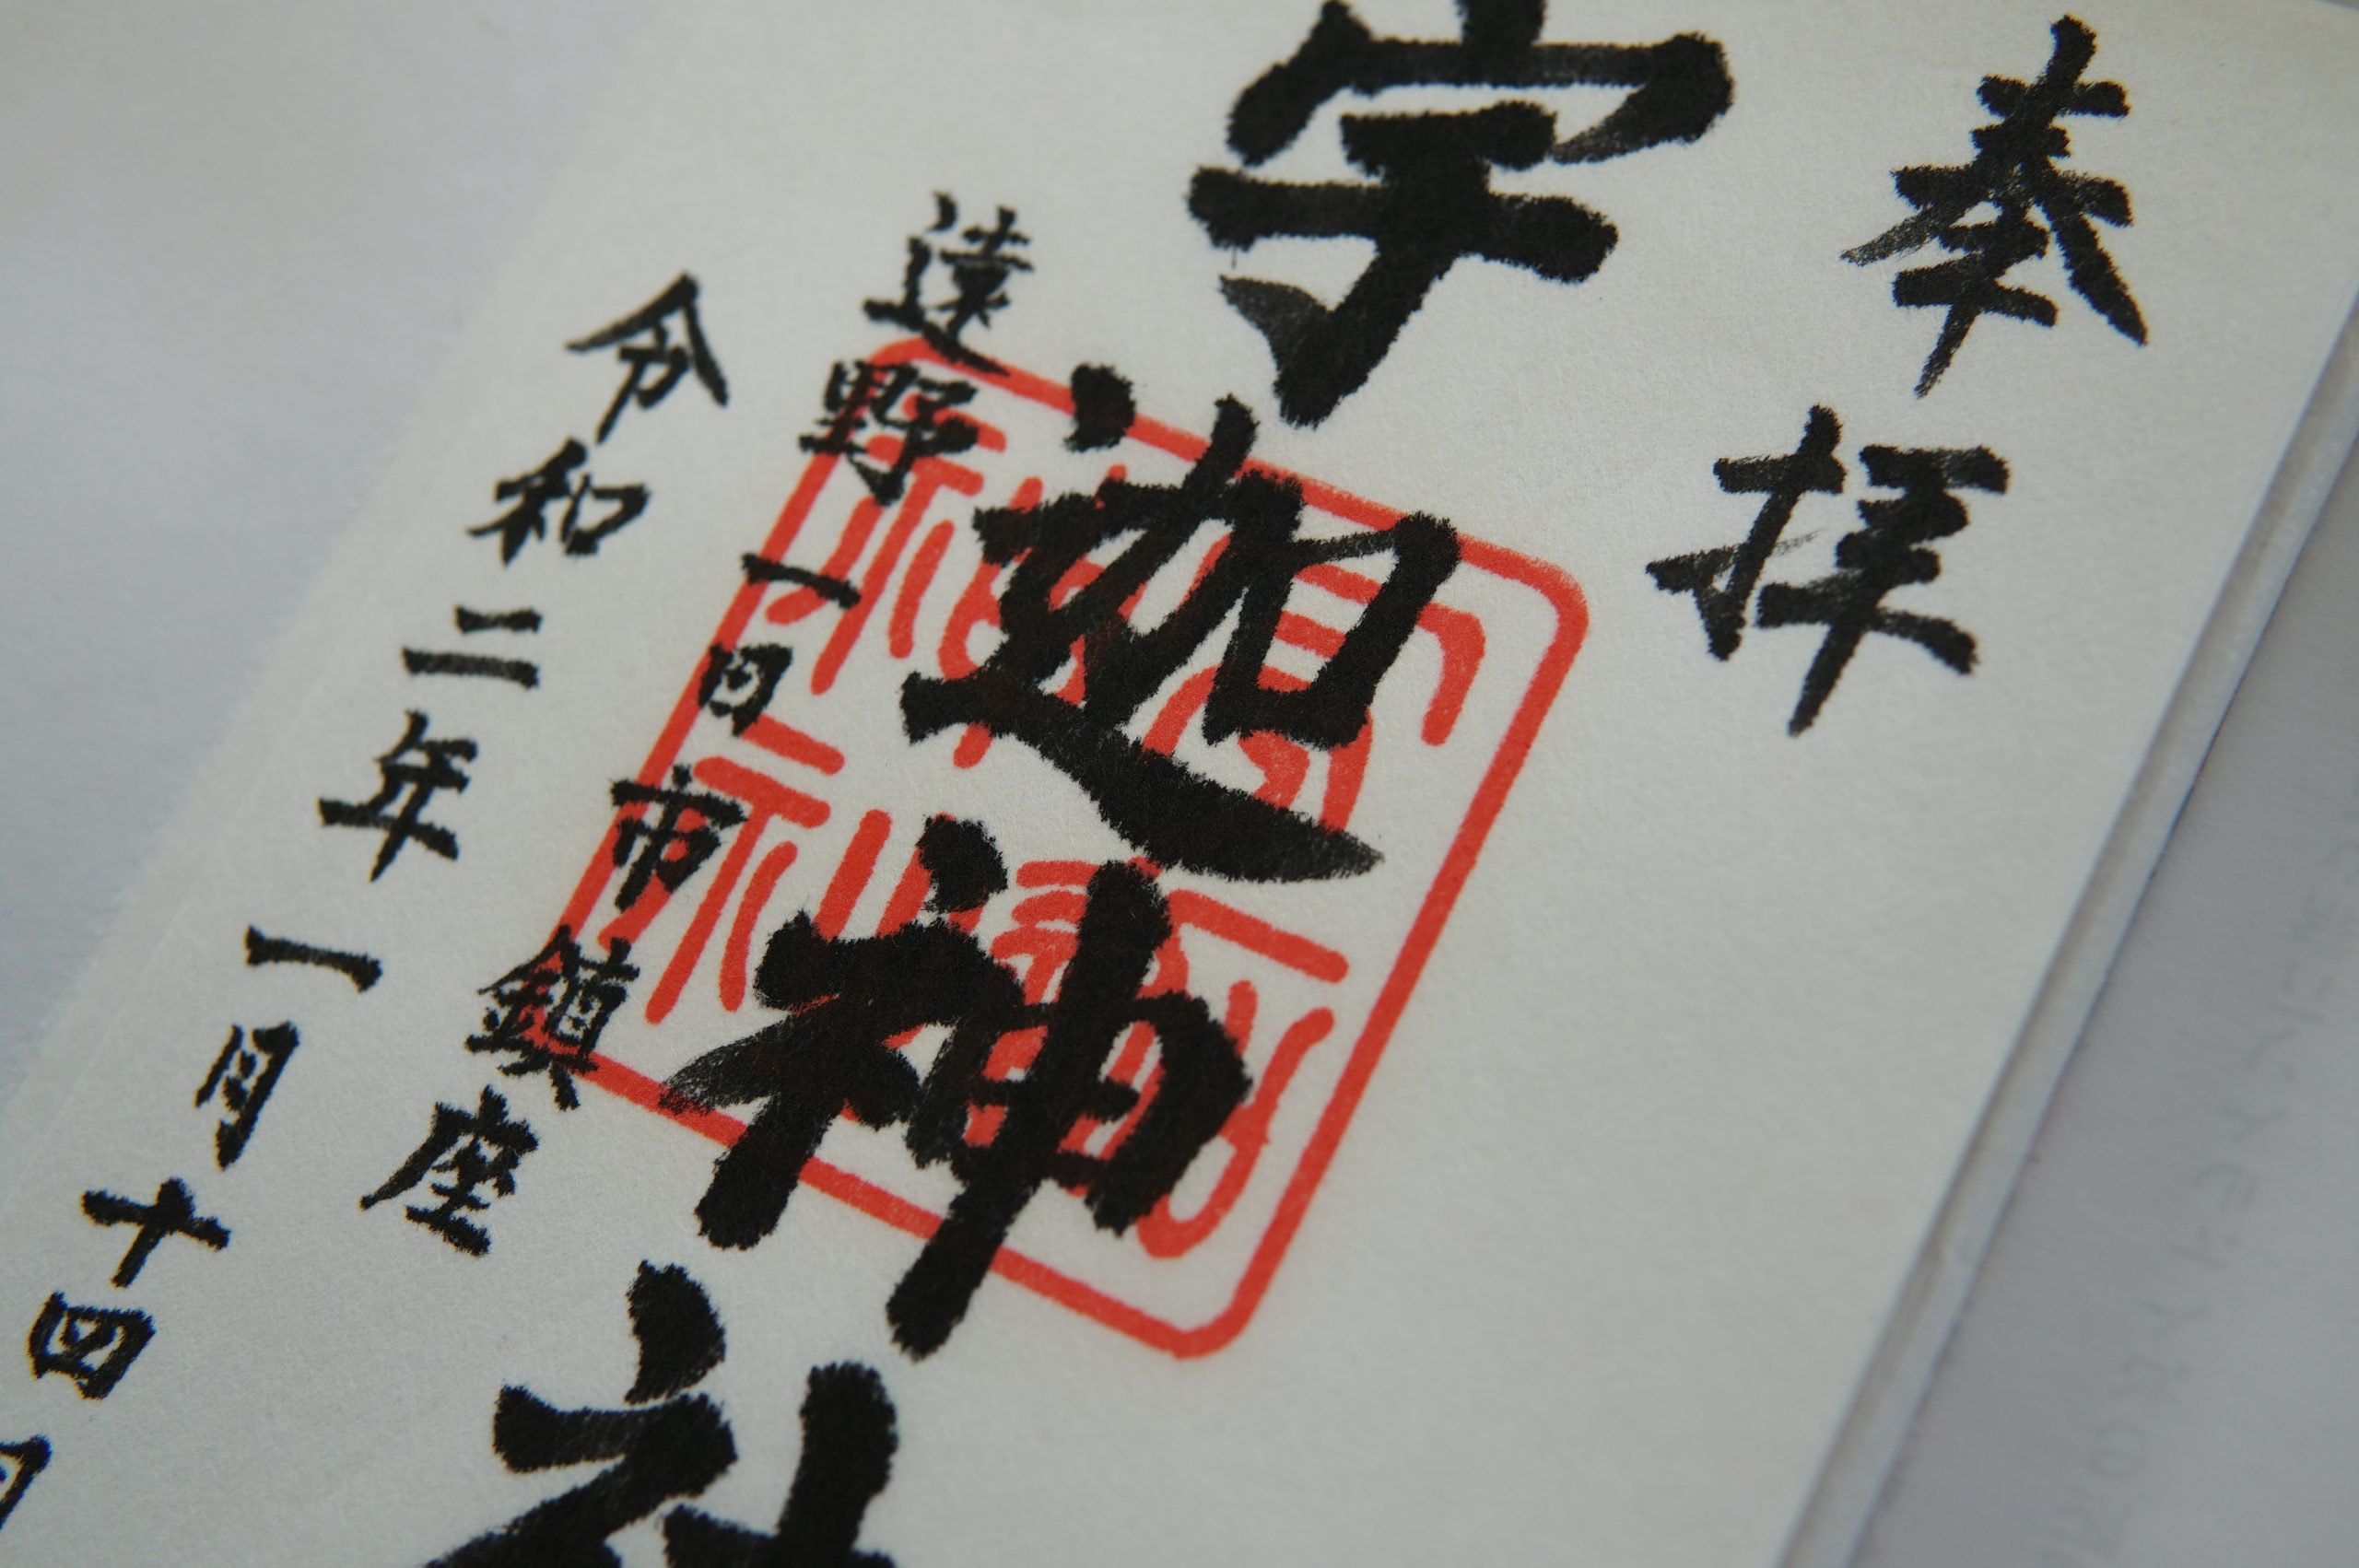 奉拝
宇迦神社
遠野一日市鎮座
令和二年一月十四日